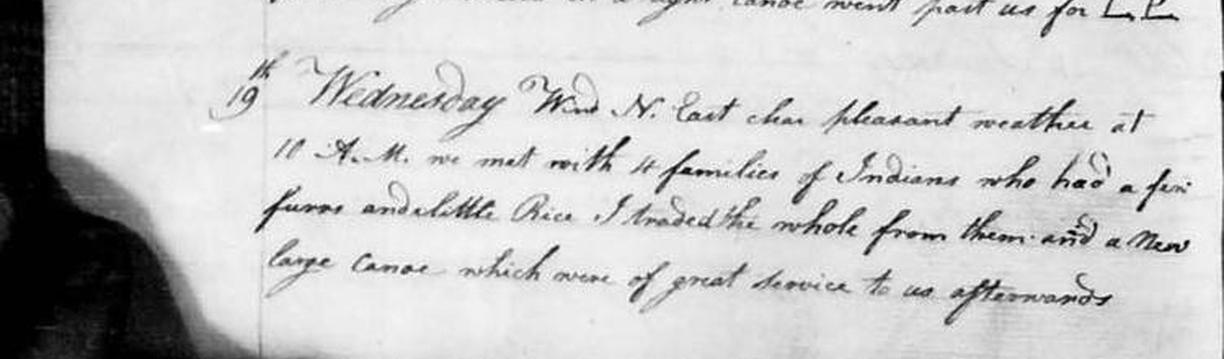 in a light canoe went past us for L. P.
19th Wednesday Wind N. East clear pleasant weather at
10 A.M. we met with 4 families of Indians who had a few
furrs and a little Rice I traded the whole from them and a New
large Canoe which were of great service to us afterwards